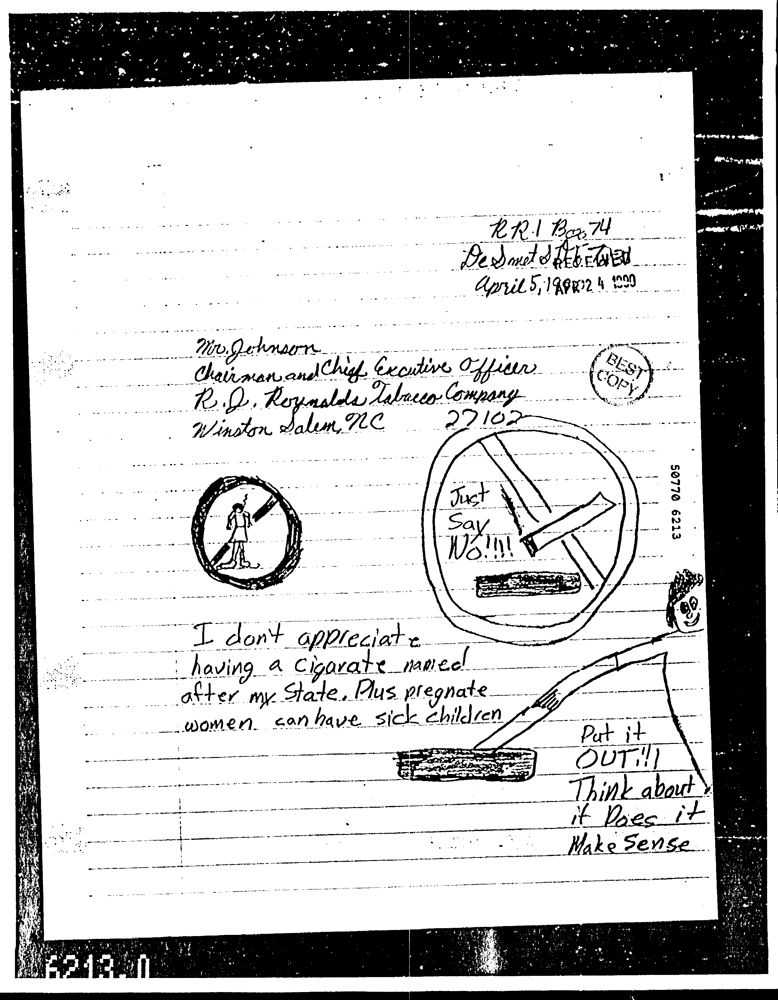 R R.1 Box 74
De Smet S.D.
RECEIVED
April 5, 19
APR 24 1990
Mr. Johnson
Chairman and Chief Excutive Officer
R. J. Roynalds Tabacco Company
Winston Salem, NC 27102
BEST
COPY
Just
Say
No!!!!
50770 6213
I don't appreciate
having a cigarate named
after my State. Plus pregnate
women can have sick children
Put it
OUT!!!
Think about
it Does it
Make Sense
6213.0